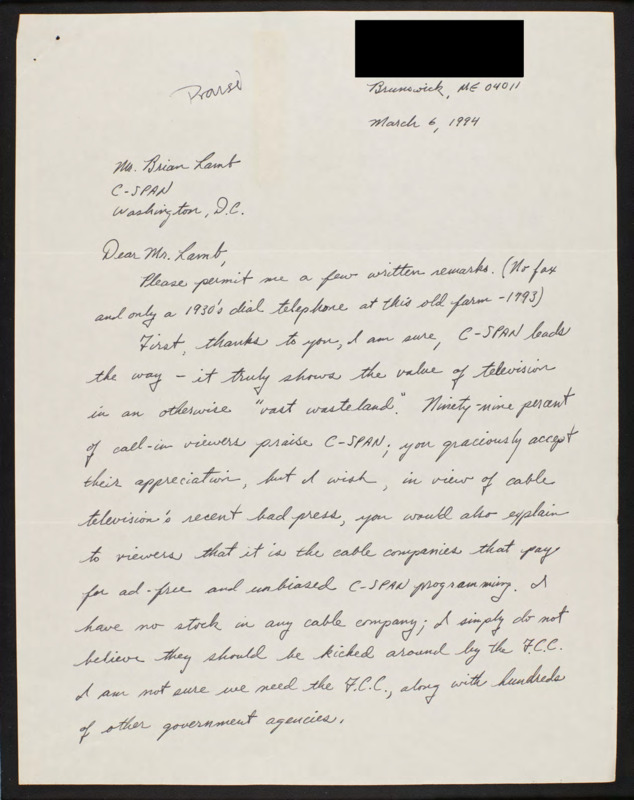 Praise
Brunswick, ME 04011
March 6, 1994
Mr. Brian Lamb
C-SPAN
Washington, D.C.
Dear Mr. Lamb,
Please permit me a few written remarks. (No fax
and only a 1930's dial telephone at this old farm - 1793)
First, thanks to you, I am sure, C-SPAN leads
the way - it truly shows the value of television
in an otherwise "vast wasteland". Ninety-nine percent
of call-in viewers praise C-SPAN; you graciously accept
their appreciation, but I wish, in view of cable
television's recent bad press, you would also explain
to viewers that it is the cable companies that pay
for ad-free and unbiased C-SPAN programming. I
have no stock in any cable company; I simply do not
believe they should be kicked around by the F.C.C.
I am not sure we need the F.C.C., along with hundreds
of other government agencies.